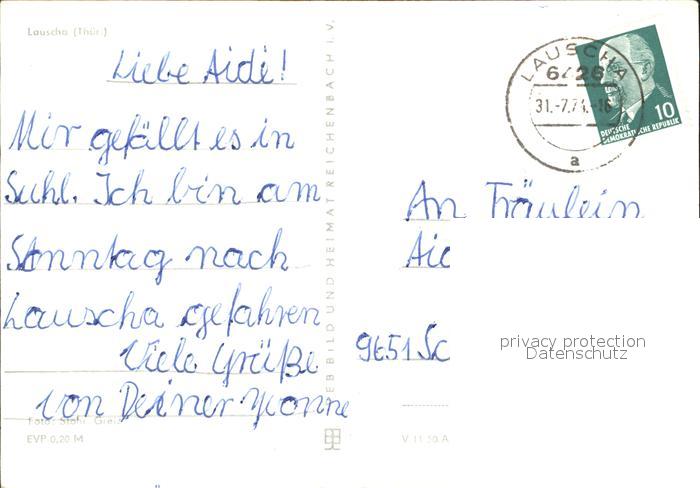 Lauscha (Thür.)
Liebe Aidé!
Mir gefällt es in
Suhl. Ich bin am
Sonntag nach
Lauscha gefahren
Viele Grüße
von Deiner Yvonne
Foto: Stöhr, Greiz
EVP 0,20 M
VEB BILD UND HEIMAT REICHENBACH I. V.
V 11 50 A
LAUSCHA
6426
a
10
DEUTSCHE
DEMOKRATISCHE REPUBLIK
An Fräulein
privacy protection
Datenschutz